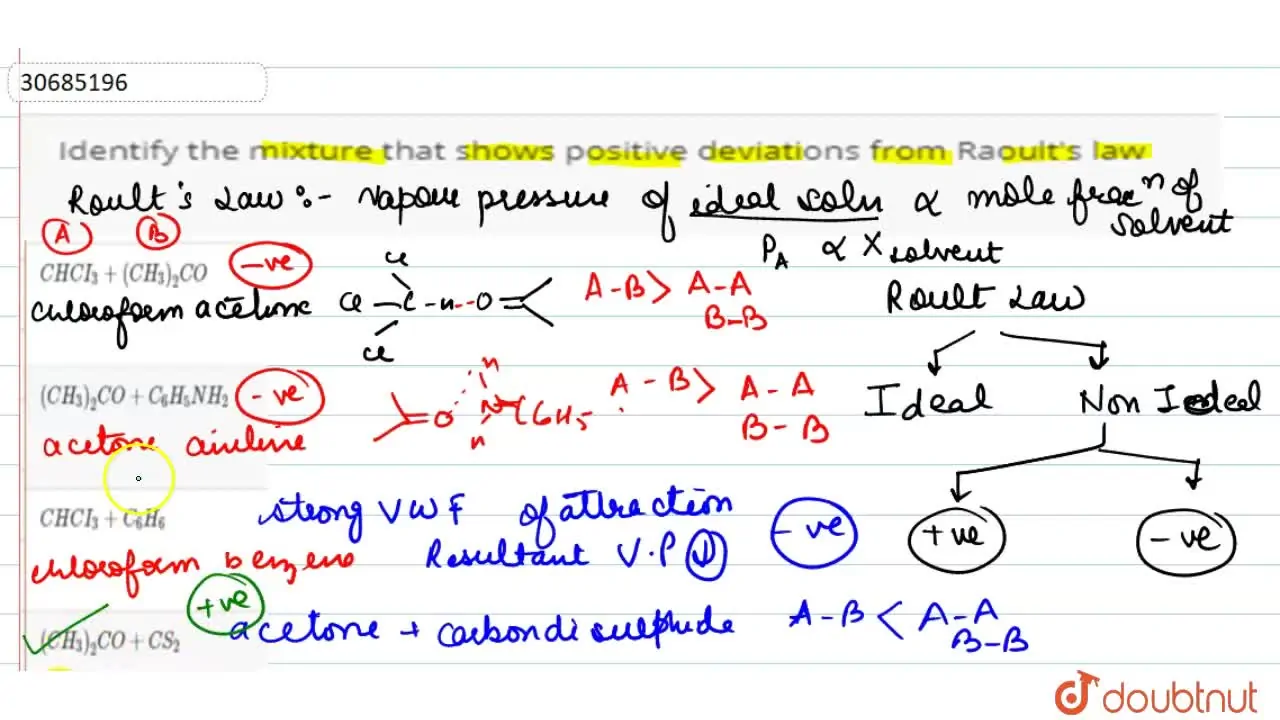 30685196
Identify the mixture that shows positive deviations from Raoult's law
Roult's Law :- vapour pressure of ideal soln ∝ mole fracⁿ of solvent
P_A ∝ X solvent
A B
CHCI₃ + (CH₃)₂CO -ve
chloroform acetone
Cl
Cl - C - H --- O =
Cl
A-B > A-A
B-B
Roult Law
Ideal Non Ideal
+ve -ve
(CH₃)₂CO + C₆H₅NH₂ -ve
acetone ainline
= O H N C6H5
H
A-B > A-A
B-B
CHCI₃ + C₆H₆
chloroform benzene
strong VWF of attraction
Resultant V.P ↓ -ve
+ve
(CH₃)₂CO + CS₂
acetone + carbondisulphide A-B < A-A
B-B
doubtnut